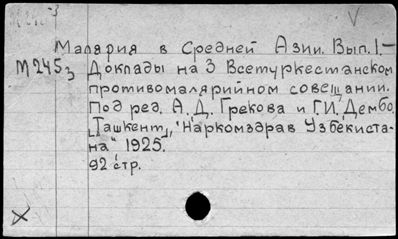 Малярия в Средней Азии. Вып. 1.—
М245з Доклады на 3 Всетуркестанском
противомалярийном совещании.
Под ред. А.Д. Грекова и Г.И. Дембо.
[Ташкент], "Наркомздрав Узбекиста-
на" 1925.
92 стр.